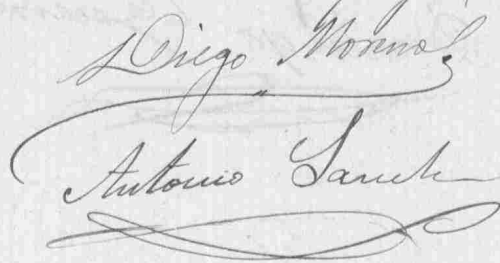 Diego Moreno
Antonio Sanch